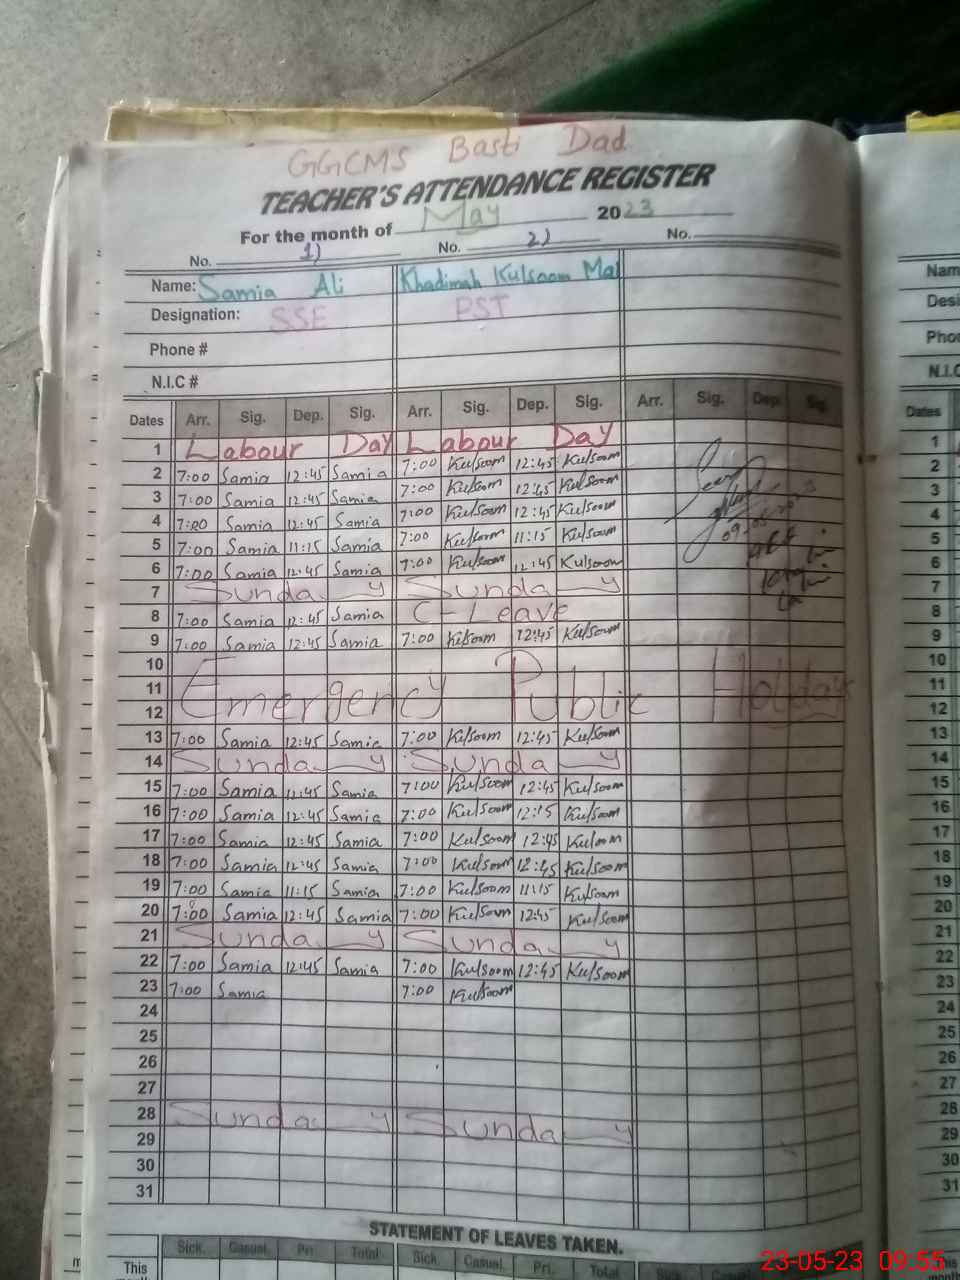 GGCMS Basti Dad
TEACHER'S ATTENDANCE REGISTER
For the month of May 2023
No. 1) No. 2) No.
Name: Samia Ali Khadimah Kulsoom Mai
Designation: SSE PST
Phone #
N.I.C #
Dates Arr. Sig. Dep. Sig. Arr. Sig. Dep. Sig. Arr. Sig. Dep. Sig.
1 Labour Day Labour Day
2 7:00 Samia 12:45 Samia 7:00 Kulsoom 12:45 Kulsoom
3 7:00 Samia 12:45 Samia 7:00 Kulsoom 12:45 Kulsoom
4 7:00 Samia 12:45 Samia 7:00 Kulsoom 12:45 Kulsoom
5 7:00 Samia 11:15 Samia 7:00 Kulsoom 11:15 Kulsoom
6 7:00 Samia 12:45 Samia 7:00 Kulsoom 12:45 Kulsoom
7 Sunday Sunday
8 7:00 Samia 12:45 Samia C-Leave
9 7:00 Samia 12:45 Samia 7:00 Kilsoom 12:45 Kulsoom
10
11 Emergency Public Holidays
12
13 7:00 Samia 12:45 Samia 7:00 Kilsoom 12:45 Kulsoom
14 Sunday Sunday
15 7:00 Samia 12:45 Samia 7:00 Kulsoom 12:45 Kulsoom
16 7:00 Samia 12:45 Samia 7:00 Kulsoom 12:15 Kulsoom
17 7:00 Samia 12:45 Samia 7:00 Kulsoom 12:45 Kuloom
18 7:00 Samia 12:45 Samia 7:00 Kulsoom 12:45 Kulsoom
19 7:00 Samia 11:15 Samia 7:00 Kulsoom 11:15 Kulsoom
20 7:00 Samia 12:45 Samia 7:00 Kulsoom 12:45 Kulsoom
21 Sunday Sunday
22 7:00 Samia 12:45 Samia 7:00 Kulsoom 12:45 Kulsoom
23 7:00 Samia 7:00 Kulsoom
24
25
26
27
28 Sunday Sunday
29
30
31
STATEMENT OF LEAVES TAKEN.
Sick. Casual. Pri. Total Sick. Casual. Pri. Total
This
09-05-2023
Nam
Desi
Pho
N.I.C
Dates
1
2
3
4
5
6
7
8
9
10
11
12
13
14
15
16
17
18
19
20
21
22
23
24
25
26
27
28
29
30
31
23-05-23 09:55